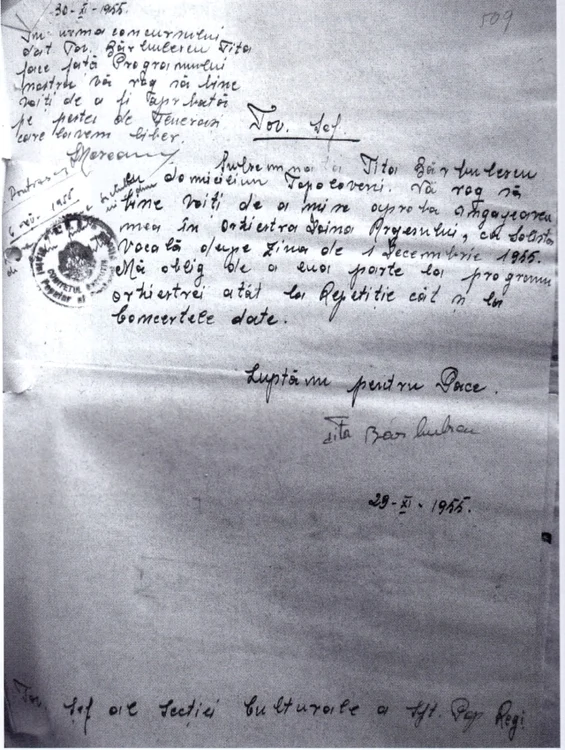 30-XI-1955
509
În urma concursului
dat Tov. Bărbulescu Tita
face față Programului
nostru vă rog să bine
voiți de a fi aprobată
pe postul de
care îl avem liber.
Tov. Șef.
Subsemnata Tita Bărbulescu
domiciliu Topoloveni. Vă rog să
bine voiți de a mine aproba angajarea
mea în orkiestra Doina Argeșului, ca solistă
vocală dupe ziua de 1 Decembrie 1955.
Mă oblig de a lua parte la programu
orkiestrei atât la Repetiție cât și la
Concertele date.
Luptăm pentru Pace.
Tita Bărbulescu
29-XI-1955.
Tov. Șef al Secției Culturale a Sft. Pop Regi